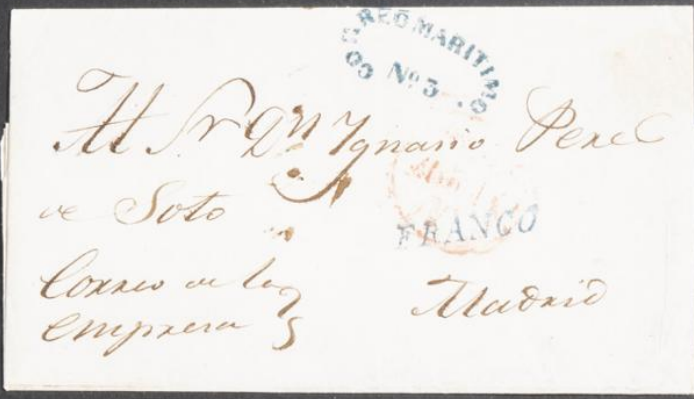 CORREO MARITIMO
Nº 3
Al Sr Dn Ygnacio Perez
de Soto
FRANCO
Correo de la
empresa
Madrid